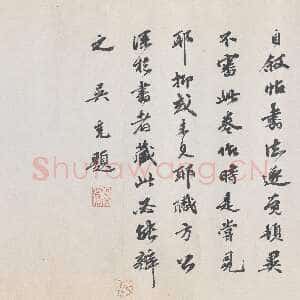 自叙帖書法逈頓異
不審此卷作時是嘗見
耶抑或未見耶儀方公
深於書者藏此必能辨
之 吳寬題
Shufawang.CN